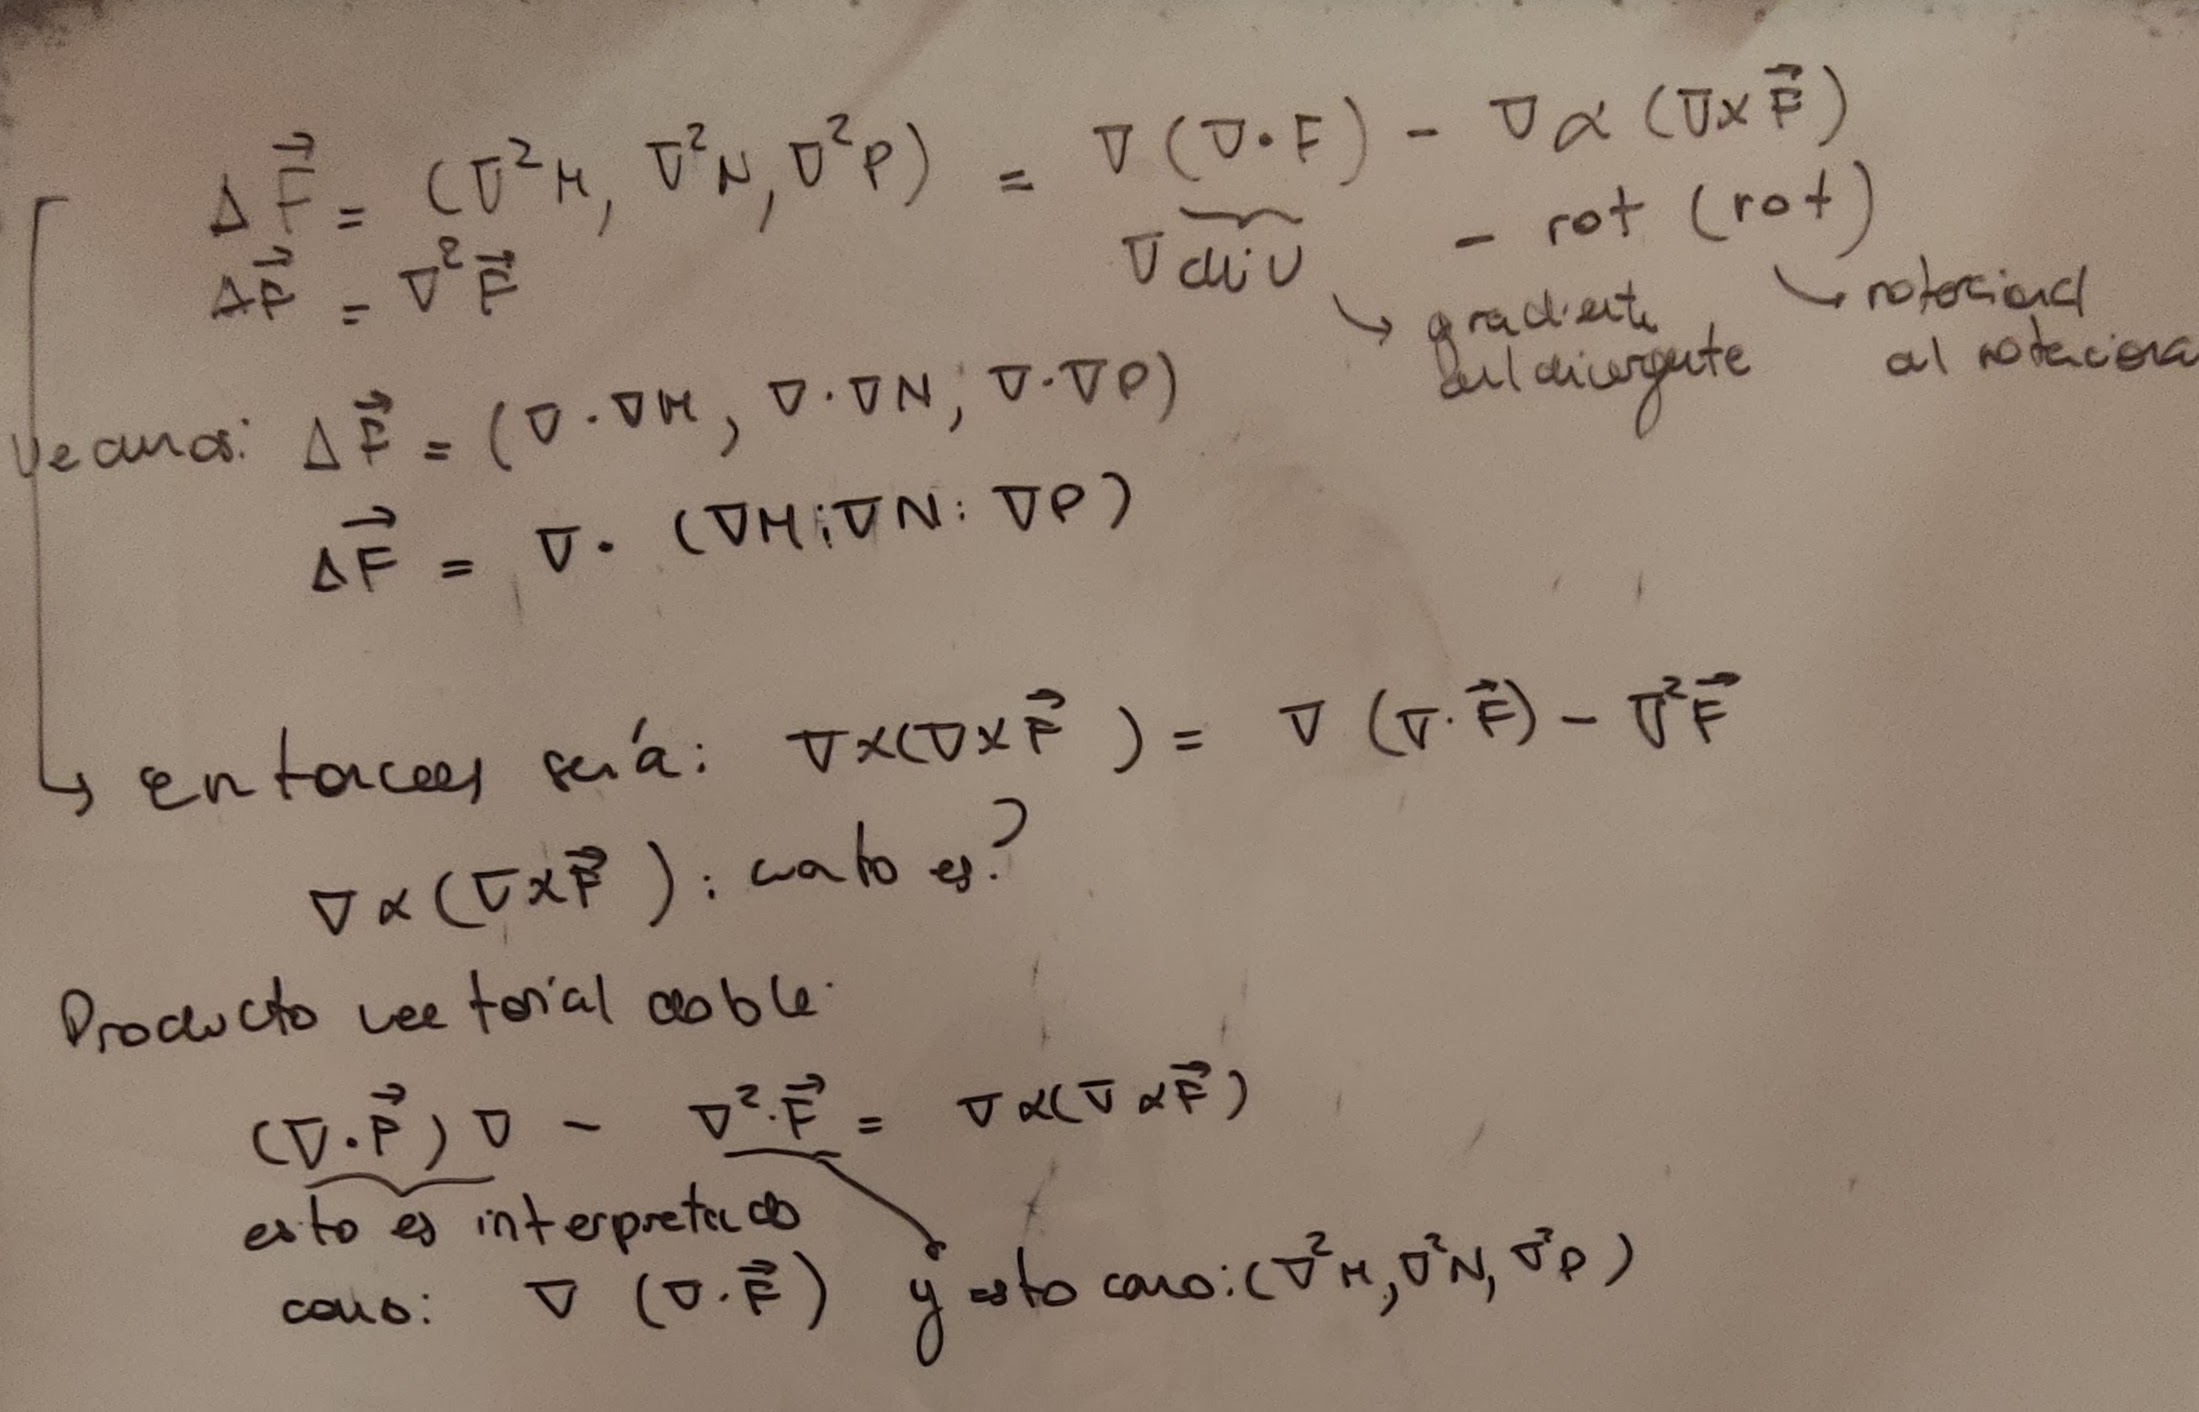 ΔF⃗ = (∇²M, ∇²N, ∇²P) = ∇(∇·F) - ∇x(∇xF⃗)
∇div - rot (rot)
ΔF⃗ = ∇²F⃗
↘ gradiente del divergente
↘ rotacional al rotacional
Veamos: ΔF⃗ = (∇·∇M, ∇·∇N, ∇·∇P)
ΔF⃗ = ∇·(∇M; ∇N; ∇P)
↳ entonces sería: ∇x(∇xF⃗) = ∇(∇·F⃗) - ∇²F⃗
∇x(∇xF⃗): cuato es?
Producto vectorial doble:
(∇·F⃗)∇ - ∇²·F⃗ = ∇x(∇xF⃗)
esto es interpretado
como: ∇(∇·F⃗) y esto como: (∇²M, ∇²N, ∇²P)